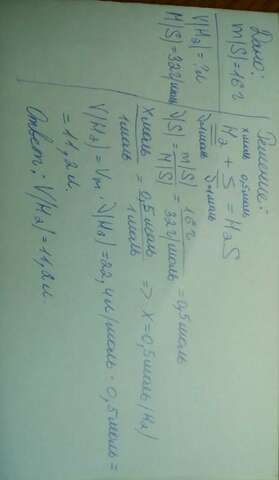 Дано:
m(S)=16г
V(H2)=?л
M(S)=32г/моль
Решение:
x моль 0,5 моль
H2 + S = H2S
ν=1моль ν=1моль
ν(S) = m(S)/M(S) = 16г/32г/моль = 0,5 моль
x моль/1моль = 0,5 моль/1 моль => x=0,5 моль (H2)
V(H2) = Vm · ν(H2) = 22,4 л/моль · 0,5 моль =
= 11,2 л.
Ответ: V(H2)=11,2 л.